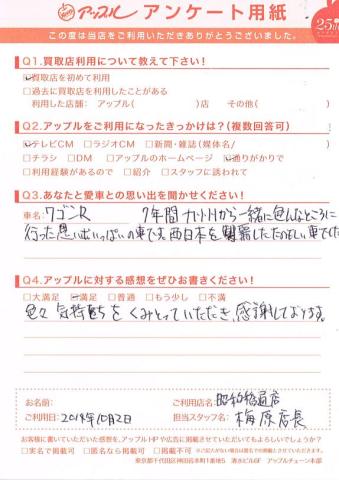 アップル アンケート用紙
25th
この度は当店をご利用いただきありがとうございました。
Q1.買取店利用について教えて下さい!
☑買取店を初めて利用
□過去に買取店を利用したことがある
利用した店舗: アップル( )店 その他( )
Q2.アップルをご利用になったきっかけは?(複数回答可)
☑テレビCM □ラジオCM □新聞・雑誌(媒体名/ )
□チラシ □DM □アップルのホームページ ☑通りがかりで
□利用経験があるので □紹介 □スタッフに誘われて
Q3.あなたと愛車との思い出を聞かせください!
車名: ワゴンR 7年間 九州から一緒に色んなところに
行った思い出いっぱいの車です。西日本を制覇したたのしい車でした
Q4.アップルに対する感想をぜひお書きください!
□大満足 ☑満足 □普通 □もう少し □不満
色々 気持ちを くみとっていただき、感謝しております。
お名前: ご利用店名: 昭和橋通店
ご利用日: 2014年10月2日 担当スタッフ名: 梅原店長
お客様に書いていただいた感想を、アップルHPや広告に掲載させていただいてもよろしいでしょうか?
□実名で掲載可 □匿名なら掲載可 □掲載不可 ※ご記入がない場合は匿名での掲載とさせていただきます。
東京都千代田区神田岩本町1番地5 清水ビル6F アップルチェーン本部